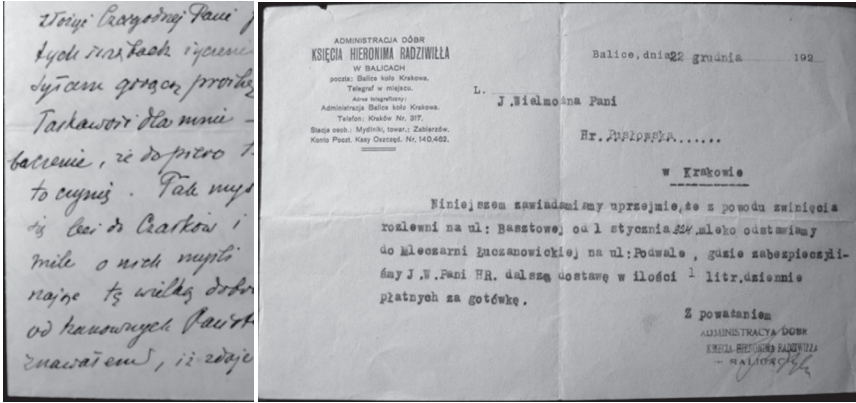 złożyć Czcigodnej Pani
tych
gorącą prośbę
Łaskawość dla mnie —
baczenie, że dopiero
to czynię. Tak
się do Czarków i
mile o nich myśli
tę wielką
od Szanownych
znawałem, iż zdaje
ADMINISTRACJA DÓBR
KSIĘCIA HIERONIMA RADZIWIŁŁA
W BALICACH
poczta: Balice koło Krakowa.
Telegraf w miejscu.
Adres telegraficzny:
Administracja Balice koło Krakowa.
Telefon: Kraków Nr. 317.
Stacja osob.: Mydlniki, towar.: Zabierzów.
Konto Poczt. Kasy Oszczęd. Nr. 140,462.
Balice, dnia 22 grudnia 192
L.
J.Wielmożna Pani
Hr. Pusłowska......
w Krakowie
Niniejszem zawiadamiamy uprzejmie,że z powodu zwinięcia
rozlewni na ul: Basztowej od 1 stycznia 924.mleko odstawiamy
do Mleczarni Łuczanowickiej na ul:Podwale , gdzie zabezpieczyli-
śmy J.W.Pani HR. dalszą dostawę w ilości 1 litr.dziennie
płatnych za gotówkę.
Z poważaniem
ADMINISTRACYA DÓBR
KSIĘCIA HIERONIMA RADZIWIŁŁA
— BALICACH